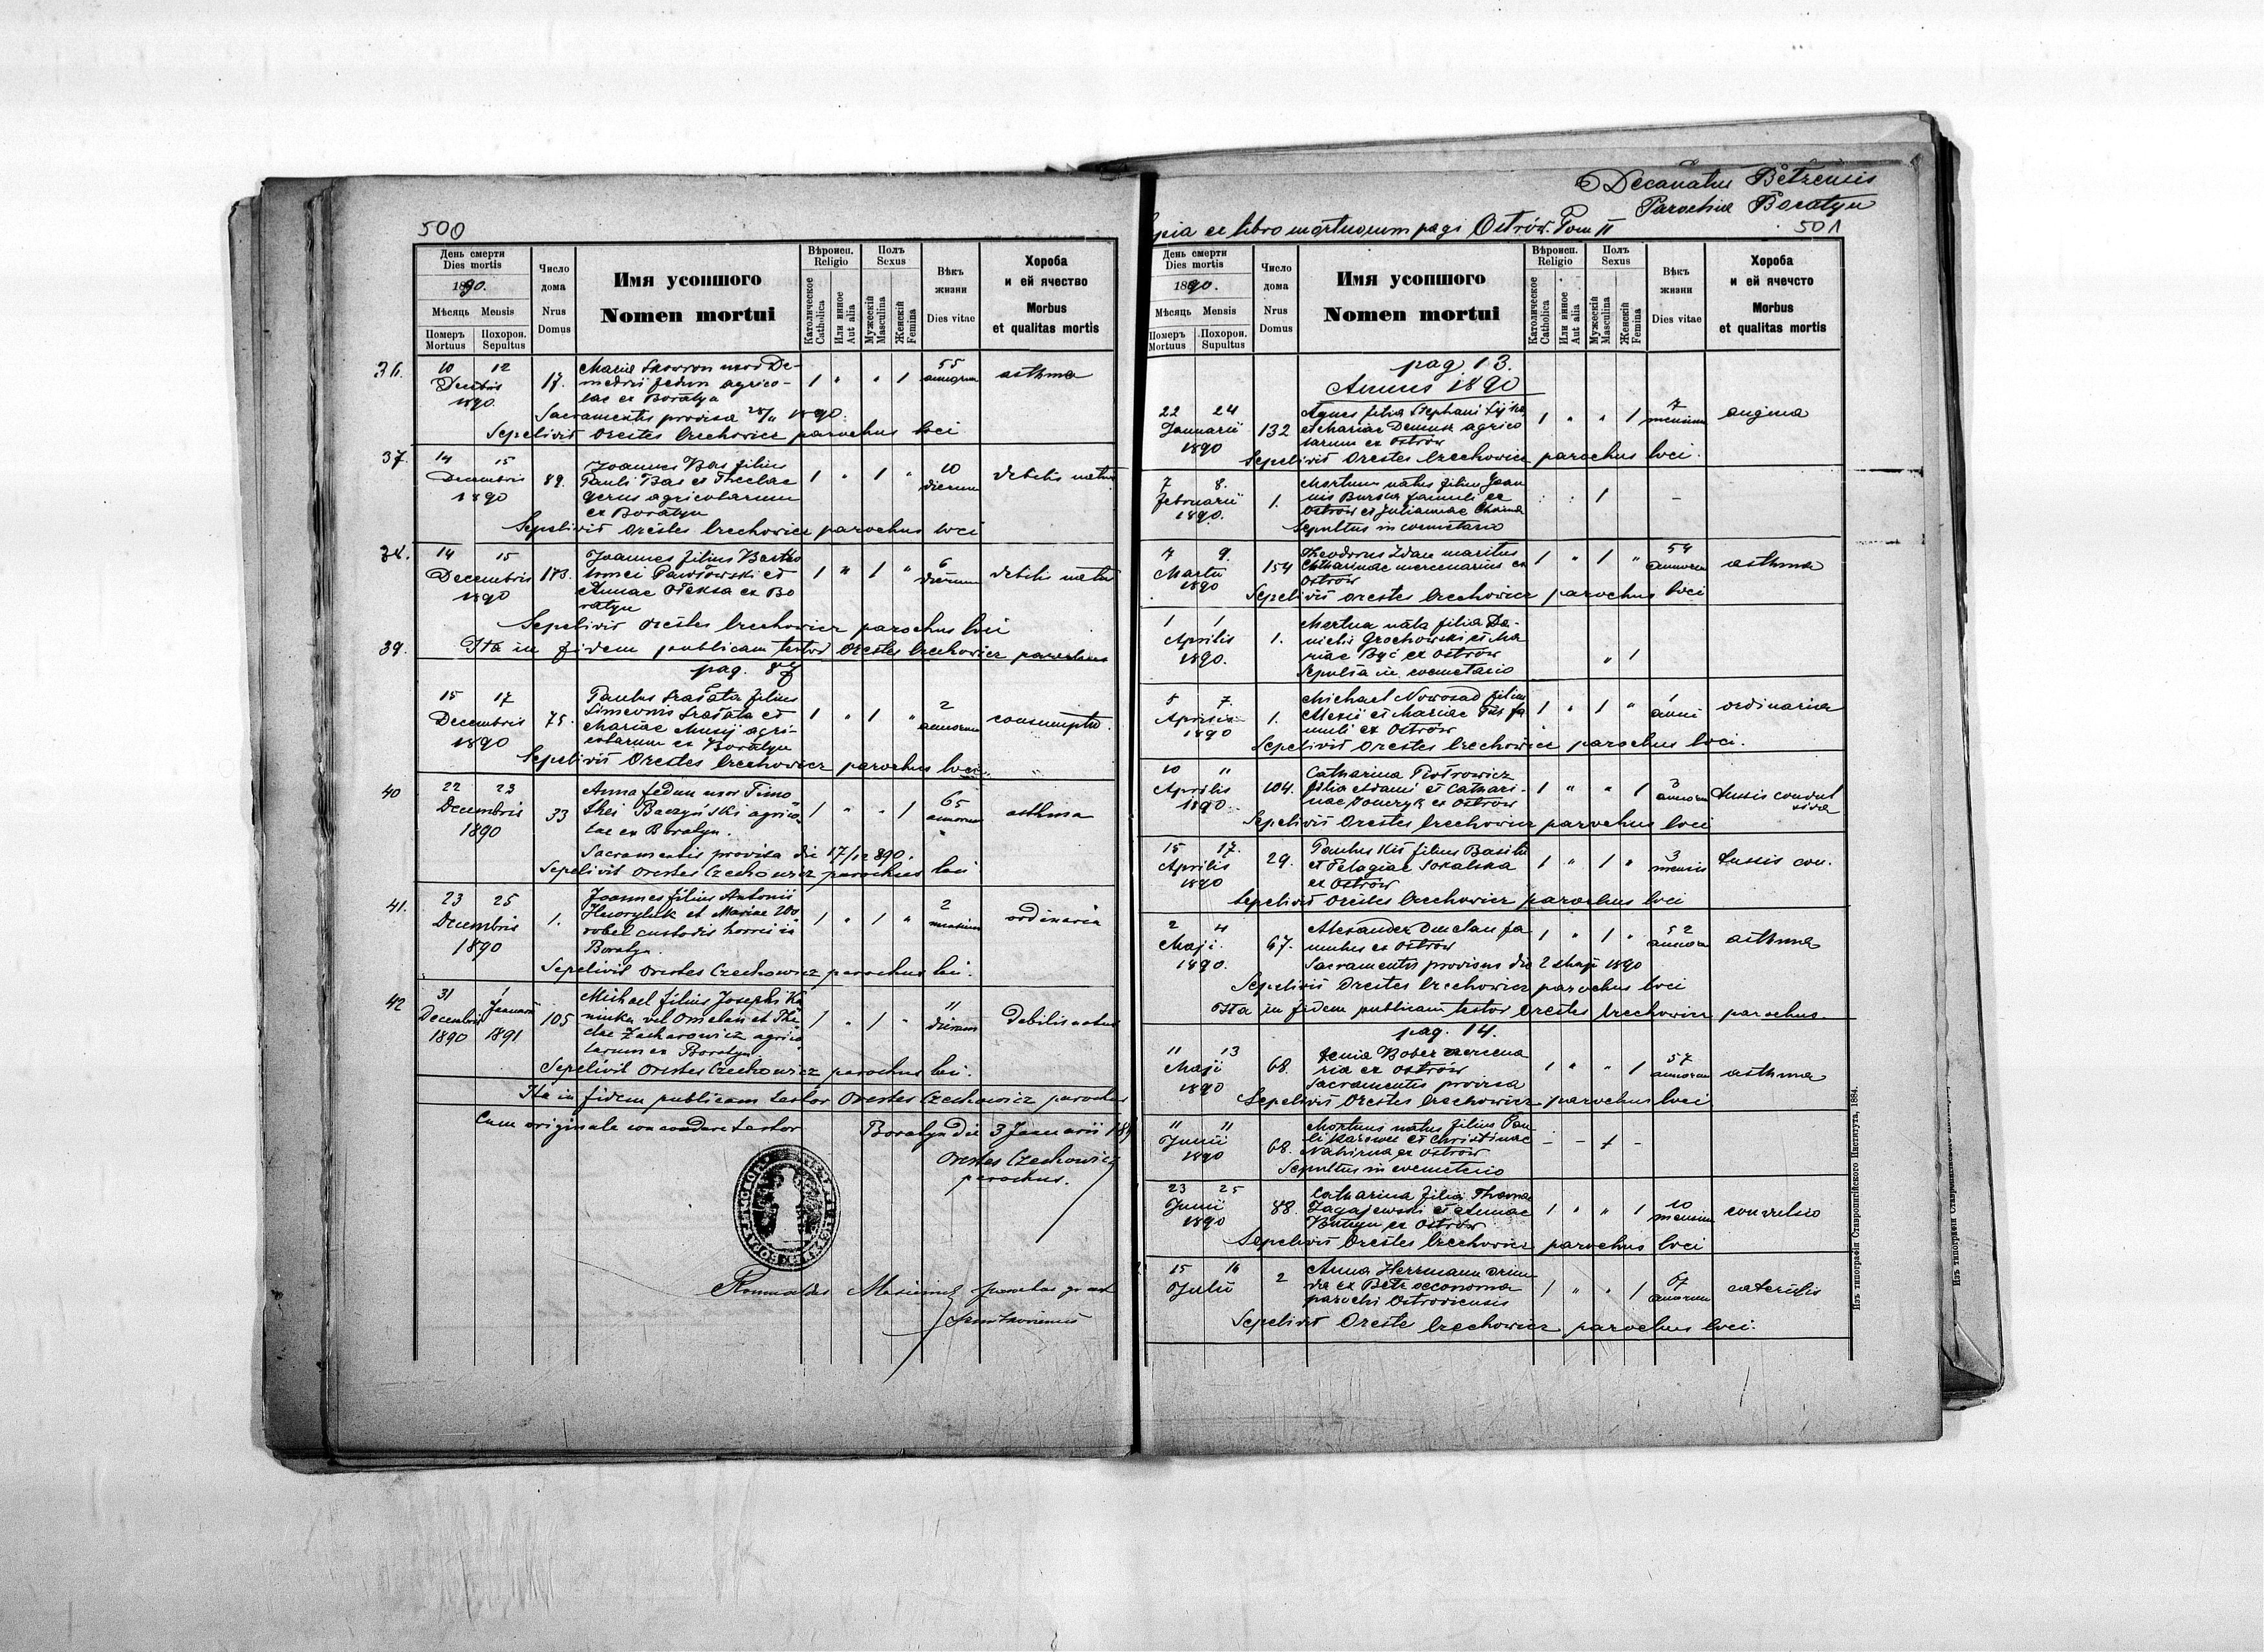 500
День смерти
Dies mortis
1890.
Мѣсяць Mensis
Померъ Mortuus
Похорон. Sepultus
Число дома
Nrus Domus
Имя усопшого
Nomen mortui
Вѣроисп.
Religio
Католическое Catholica
Или инное Aut alia
Полъ
Sexus
Мужескій Masculina
Женскій Femina
Вѣкъ жизни
Dies vitae
Хороба и ей ячество
Morbus et qualitas mortis
36. 10 12
Decbris 17. 1 " " 1 55 annorum asthma
1890
lae ex Boratyn
Sacramentis provisa 28/11 1890.
Sepelivit Orestes Czechowicz parochus loci
37. 14 15 Joannes Bas filius
Decembris 89. Pauli Bas et Theclae 1 " 1 " 10 dierum debilis natus
1890 agricolarum
ex Boratyn
Sepelivit Orestes Czechowicz parochus loci
38. 14 15 Joannes filius Bartho
Decembris 173. lomei Pawłowski et 1 " 1 " 6 dierum debilis natus
1890 Annae Ołeksa ex Bo
ratyn
Sepelivit Orestes Czechowicz parochus loci
39. Ita in fidem publicam testor Orestes Czechowicz parochus
pag. 87
15 17 Paulus filius
Decembris 75. Simeonis et 1 " 1 " 2 annorum
1890 Mariae Musij agri-
colarum ex Boratyn
Sepelivit Orestes Czechowicz parochus loci
40 22 23 Anna Fedun uxor Timo
Decembris 33 thei Baczyński agrico 1 " " 1 65 annorum asthma
1890 lae ex Boratyn.
Sacramentis provisa die 17/12 890.
Sepelivit Orestes Czechowicz parochus loci
41. 23 25 Joannes filius Antonii
Decembris 1. et Mariae Wo 1 " 1 " 2 mensium ordinaria
1890 robel custodis horrei in
Boratyn.
Sepelivit Orestes Czechowicz parochus loci.
42 31 1 Michael filius Josephi
Decembris Januarii 105 vel Omelan et The 1 " 1 " 11 dierum debilis natus
1890 1891 clae Zacharowicz agrico
larum ex Boratyn.
Sepelivit Orestes Czechowicz parochus loci.
Ita in fidem publicam testor Orestes Czechowicz parochus
Cum originale concordare testor Boratyn die 3 Januarii
Orestes Czechowicz
parochus.
Decanatus Bełzensis
Parochia Boratyn
ex libro mortuorum pagi Ostrów. Tom II 501
День смерти
Dies mortis
1890.
Мѣсяць Mensis
Померъ Mortuus
Похорон. Supultus
Число дома
Nrus Domus
Имя усопшого
Nomen mortui
Вѣроисп.
Religio
Католическое Catholica
Или инное Aut alia
Полъ
Sexus
Мужескій Masculina
Женскій Femina
Вѣкъ жизни
Dies vitae
Хороба и ей ячечсто
Morbus et qualitas mortis
pag. 13.
Annus 1890
22 24 Agnes filia Stephani
Januarii 132 et Mariae Demusz agrico 1 " " 1 7 mensium angina
1890 larum ex Ostrów
Sepelivit Orestes Czechowicz parochus loci.
7 8. Mortuus natus filius Joan
Februarii 1. nis famuli ex 1 -
1890. Ostrów et Juliannae
Sepultus in coemeterio
7 9. Theodorus Zdan maritus
Martii 154 Catharinae mercenarius ex 1 " 1 " 54 annorum asthma
1890 Ostrów
Sepelivit Orestes Czechowicz parochus loci
1 1 Mortua nata filia Da-
Aprilis 1. nielis Grochowski et Ma
1890. riae Być ex Ostrów " 1
Sepulta in coemeterio
5 7. Michael Nowosad filius
Aprilis 1. Alexii et Mariae fa 1 " 1 " 1 anni ordinaria
1890 muli ex Ostrów
Sepelivit Orestes Czechowicz parochus loci.
10 11 Catharina Piotrowicz
Aprilis 104. filia Adami et Cathari- 1 " " 1 3 annorum tussis convul
1890. nae ex Ostrów siva
Sepelivit Orestes Czechowicz parochus loci
15 17. Paulus Kit filius Basilii
Aprilis 29. et Pelagiae Sokalska 1 " 1 " 3 mensis tussis con.
1890 ex Ostrów
Sepelivit Orestes Czechowicz parochus loci
2 4 Alexander fa
Maji 67. mulus ex Ostrów 1 " 1 " 52 annorum asthma
1890. Sacramentis provisus die 2 Maji 1890
Sepelivit Orestes Czechowicz parochus loci
Ita in fidem publicam testor Orestes Czechowicz parochus.
pag. 14.
11 13 Xenia Bober mercena
Maji 68. ria ex Ostrów 1 " " 1 57 annorum asthma
1890 Sacramentis provisa
Sepelivit Orestes Czechowicz parochus loci
11 11 Mortuus natus filius Pau
Junii 68. li et Christinae - - 1 -
1890 Nahirna ex Ostrów
Sepultus in coemeterio
23 25 Catharina filia Thomae
Junii 88. Zagajewski et Annae 1 " " 1 10 mensium convulsio
1890 Butryn ex Ostrów
Sepelivit Orestes Czechowicz parochus loci
15 16 Anna Herrmann oriun
Julii 2 da ex Bełz oeconoma 1 " " 1 67 annorum
parochi Ostroviensis
Sepelivit Oreste Czechowicz parochus loci.
Изъ типографіи Ставропигійского Института, 1884.